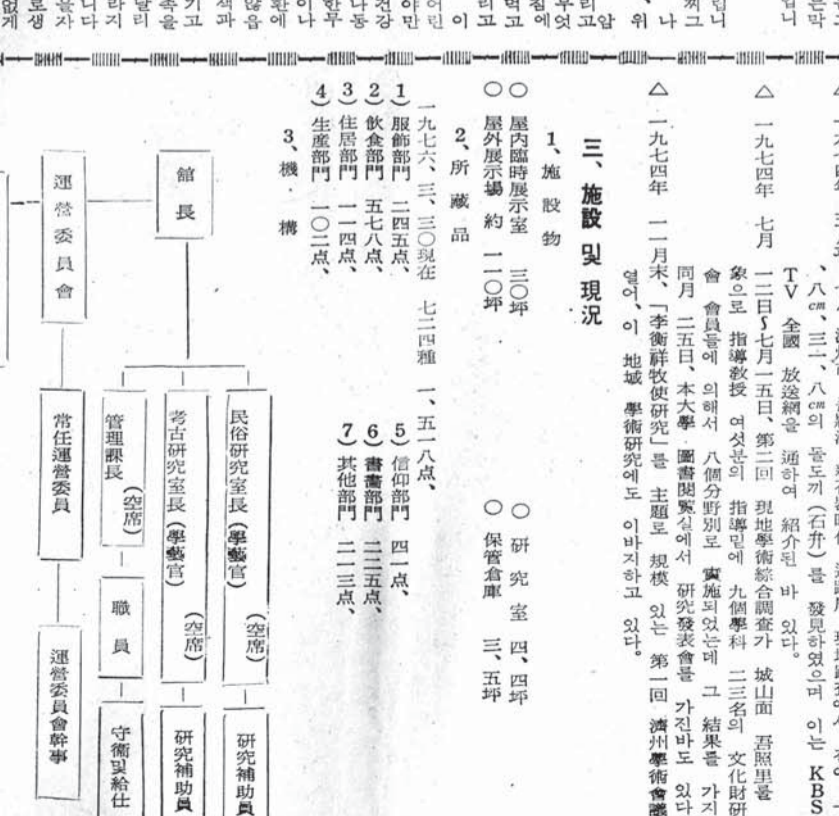 、八cm、三一、八cm의 돌도끼(石斧)를 發見하였으며 이는 KBS
TV 全國 放送網을 通하여 紹介된 바 있다.
△ 一九七四年 七月 一二日~七月一五日、第二回 現地學術綜合調査가 城山面 吾照里를
象으로 指導敎授 여섯분의 指導밑에 九個學科 二三名의 文化財硏
會 會員들에 의해서 八個分野別로 實施되었는데 그 結果를 가지
同月 二五日、本大學 圖書閱覽실에서 硏究發表會를 가진바도 있다
△ 一九七四年 一一月末、「李衡祥牧使硏究」를 主題로 規模 있는 第一回 濟州學術會議
열어、이 地域 學術硏究에도 이바지하고 있다.
三、施設 및 現況
1、施設物
○ 屋內臨時展示室 三○坪
○ 硏究室 四、四坪
○ 屋外展示場 約 一一○坪
○ 保管倉庫 三、五坪
2、所藏品
一九七六、三、三○現在 七二四種 一、五一八点、
1) 服飾部門 二四五点、
5) 信仰部門 四一点、
2) 飮食部門 五七八点、
6) 書畵部門 二二五点、
3) 住居部門 一一四点、
7) 其他部門 二一三点、
4) 生産部門 一○二点、
3、機構
館長
民俗硏究室長(學藝官) (空席)
硏究補助員
考古硏究室長(學藝官) (空席)
硏究補助員
管理課長 (空席)
職員
守衞및給仕
運營委員會
常任運營委員
運營委員會幹事